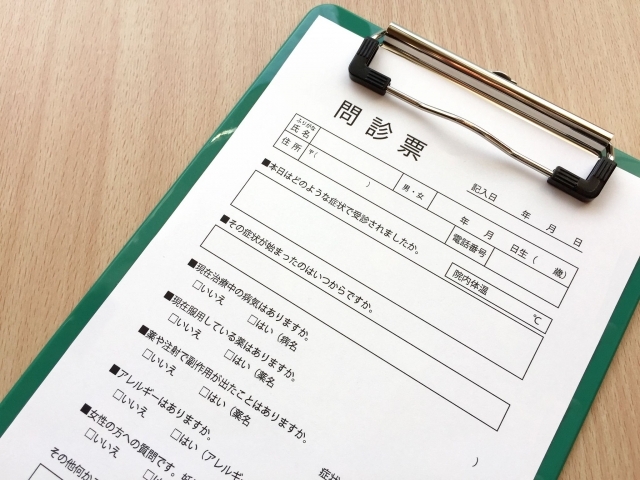 問診票
記入日 年 月 日
ふりがな
氏名 男・女 年 月 日生 ( 歳)
住所 〒( ) 電話番号
■本日はどのような症状で受診されましたか。
院内体温 ℃
■その症状が始まったのはいつからですか。
■現在治療中の病気はありますか。
□いいえ □はい (病名
■現在服用している薬はありますか。
□いいえ □はい (薬名
■薬や注射で副作用が出たことはありますか。
□いいえ □はい (薬名 )
■アレルギーはありますか。
□いいえ □はい (アレルギー 症状
■女性の方への質問です。
□いいえ
その他何か